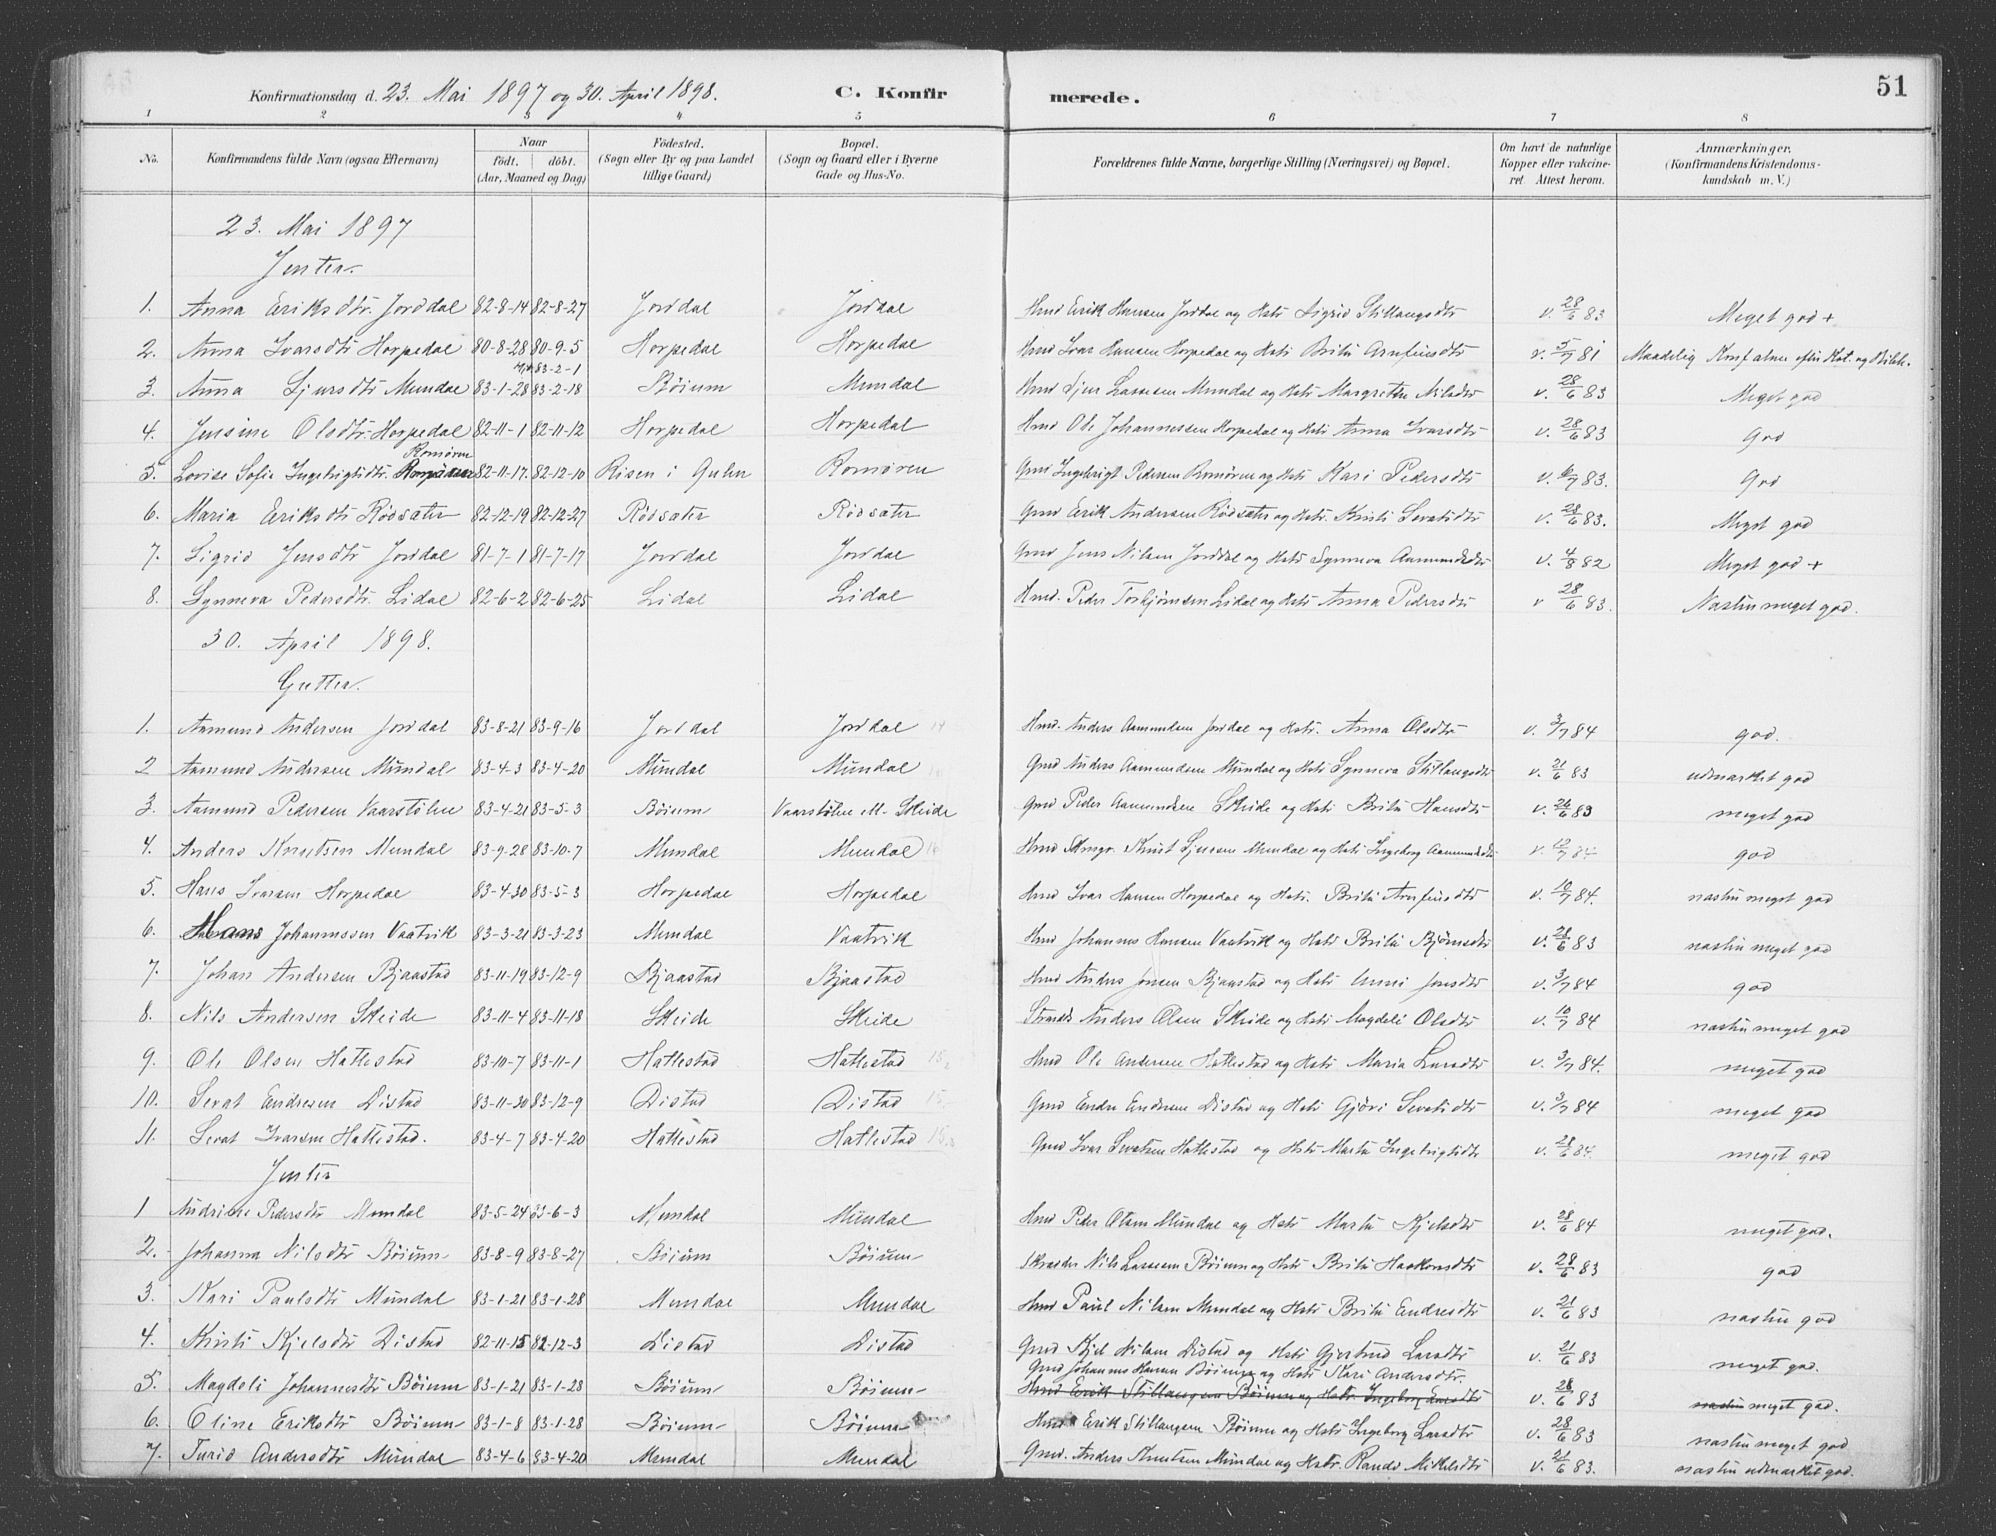 51
Konfirmationsdag d. 23. Mai 1897 og 30. April 1898. C. Konfirmerede.
1 2 3 4 5 6 7 8
No. Konfirmandens fulde Navn (ogsaa Efternavn) Naar födt. döbt. (Aar, Maaned og Dag) Födested. (Sogn eller By og paa Landet tillige Gaard) Bopæl. (Sogn og Gaard eller i Byerne Gade og Hus-No. Forældrenes fulde Navne, borgerlige Stilling (Næringsvei) og Bopæl. Om havt de naturlige Kopper eller vakcineret Attest herom. Anmærkninger, (Konfirmandens Kristendomskundskab m. V.)
23. Mai 1897
Jenter.
1. Anna Eriksdtr. Jordal 82-8-14 82-8-27 Jordal Jordal Erik Hansen Jordal og Hstr Sigrid Stillaugsdtr v. 28/6 83 Meget god +
2. Anna Ivarsdtr Horpedal 80-8-28 80-9-5 Horpedal Horpedal Ivar Hansen Horpedal og Hstr Brita Arnfinsdtr v. 5/7 81 Maadelig
83-2-1
3. Anna Sjursdtr Mundal 83-1-28 83-2-18 Böium Mundal Sjur Lassesen Mundal og Hstr Margrethe Nilsdtr v. 28/6 83 Meget god
4. Jensine Olsdtr. Horpedal 82-11-1 82-11-12 Horpedal Horpedal Ole Johannessen Horpedal og Hstr Anna Ivarsdtr v. 28/6 83 God
Romøren
5. Lovise Sofie Ingebrigtsdtr. 82-11-17. 82-12-10 Risen i Romøren Ingebrigt Pedersen Romøren og Hstr Kari Pedersdtr v. 6/7 83. God
6. Maria Eriksdtr Rödsæter 82-12-19 82-12-27 Rödsæter Rödsæter Erik Andersen Rödsæter og Hstr. Kristi Sevatsdtr v. 28/6 83. Meget god
7. Sigrid Jensdtr Jordal 81-7-1 81-7-17 Jordal Jordal Jens Nilsen Jordal og Hstr Synneva Aamundsdtr v. 4/8 82 Meget god +
8. Synneva Pedersdtr. Lidal 82-6-2 82-6-25 Lidal Lidal Peder Torbjørnsen Lidal og Hstr Anna Pedersdtr v 28/6 83. Næsten meget god.
30. April 1898.
Gutter.
1. Aamund Andersen Jordal 83-8-21 83-9-16 Jordal Jordal Anders Aamundsen Jordal og Hstr. Anna Olsdtr v. 3/7 84 god.
2 Aamund Andersen Mundal 83-4-3 83-4-20 Mundal Mundal Anders Aamundsen Mundal og Hstr Synneva Stillaugsdtr v. 21/6 83 udmærket god
3. Aamund Pedersen Vaarstölen 83-4-21 83-5-3 Böium Vaarstölen Skeide Peder Aamundsen Skeide og Hstr Brita Hansdtr v. 28/6 83 meget god
4. Anders Knutsen Mundal 83-9-28 83-10-7 Mundal Mundal Knut Sjursen Mundal og Hstr Ingeborg Aamundsdtr v. 10/7 84 god
5. Hans Ivarsen Horpedal 83-4-30 83-5-3 Horpedal Horpedal Ivar Hansen Horpedal og Hstr. Brita Arnfinsdtr v. 10/7 84. næsten meget god
6. Hans Johannessen Vaatvik 83-3-21 83-3-23 Mundal Vaatvik Johannes Hansen Vaatvik og Hstr Brita Bjørnsdtr v. 28/6 83 næsten meget god
7. Johan Andersen Bjaastad 83-11-19 83-12-9 Bjaastad Bjaastad Anders Jonsen Bjaastad og Hstr Anni Jonsdtr v. 3/7 84 god
8. Nils Andersen Skeide 83-11-4 83-11-18 Skeide Skeide Anders Olsen Skeide og Hstr Magdeli Olsdtr v. 10/7 84 næsten meget god
9. Ole Olsen Hatlestad 83-10-7 83-11-1 Hatlestad Hatlestad Ole Andersen Hatlestad og Hstr Maria Larsdtr v. 3/7 84. meget god
10. Sevat Endresen Distad 83-11-30 83-12-9 Distad Distad Endre Endresen Distad og Hstr Gjöri Sevatsdtr v. 3/7 84 meget god
11. Sevat Ivarsen Hatlestad. 83-4-7 83-4-20 Hatlestad Hatlestad Ivar Sevatsen Hatlestad og Hstr Marta Ingebrigtsdtr v. 28/6 84. meget god
Jenter
1 Andrine Pedersdtr Mundal 83-5-24 83-6-3 Mundal Mundal Peder Olsen Mundal og Hstr Marta Kjelsdtr v. 28/6 84 meget god.
2. Johanna Nilsdtr Böium 83-8-9 83-8-27 Böium Böium Nils Lassesen Böium og Hstr Brita Haakonsdtr v. 28/6 83 god
3. Kari Paulsdtr Mundal 83-1-21 83-1-28 Mundal Mundal Paul Nilsen Mundal og Hstr Brita Endresdtr v. 21/6 83 næsten god
4. Kristi Kjelsdtr Distad 82-11-15 82-12-3 Distad Distad Kjel Nilsen Distad og Hstr Gjertrud Larsdtr v. 21/6 83 meget god.
Johannes Hansen Böium og Hstr Kari Andersdtr.
5. Magdeli Johannesdtr Böium 83-1-21 83-1-28 Böium Böium Erik Stillaugsen Böium og Hstr Ingeborg Larsdtr v. 28/6 83 næsten meget god.
6. Oline Eriksdtr Böium 83-1-8 83-1-28 Böium Böium Erik Stillaugsen Böium og Hstr Ingeborg Larsdtr v. 28/6 83 næsten meget god
7. Turid Andersdtr Mundal 83-4-6 83-4-20 Mundal Mundal Anders Knutsen Mundal og Hstr. Randi Mikelsdtr v. 21/6 83. næsten udmærket god.